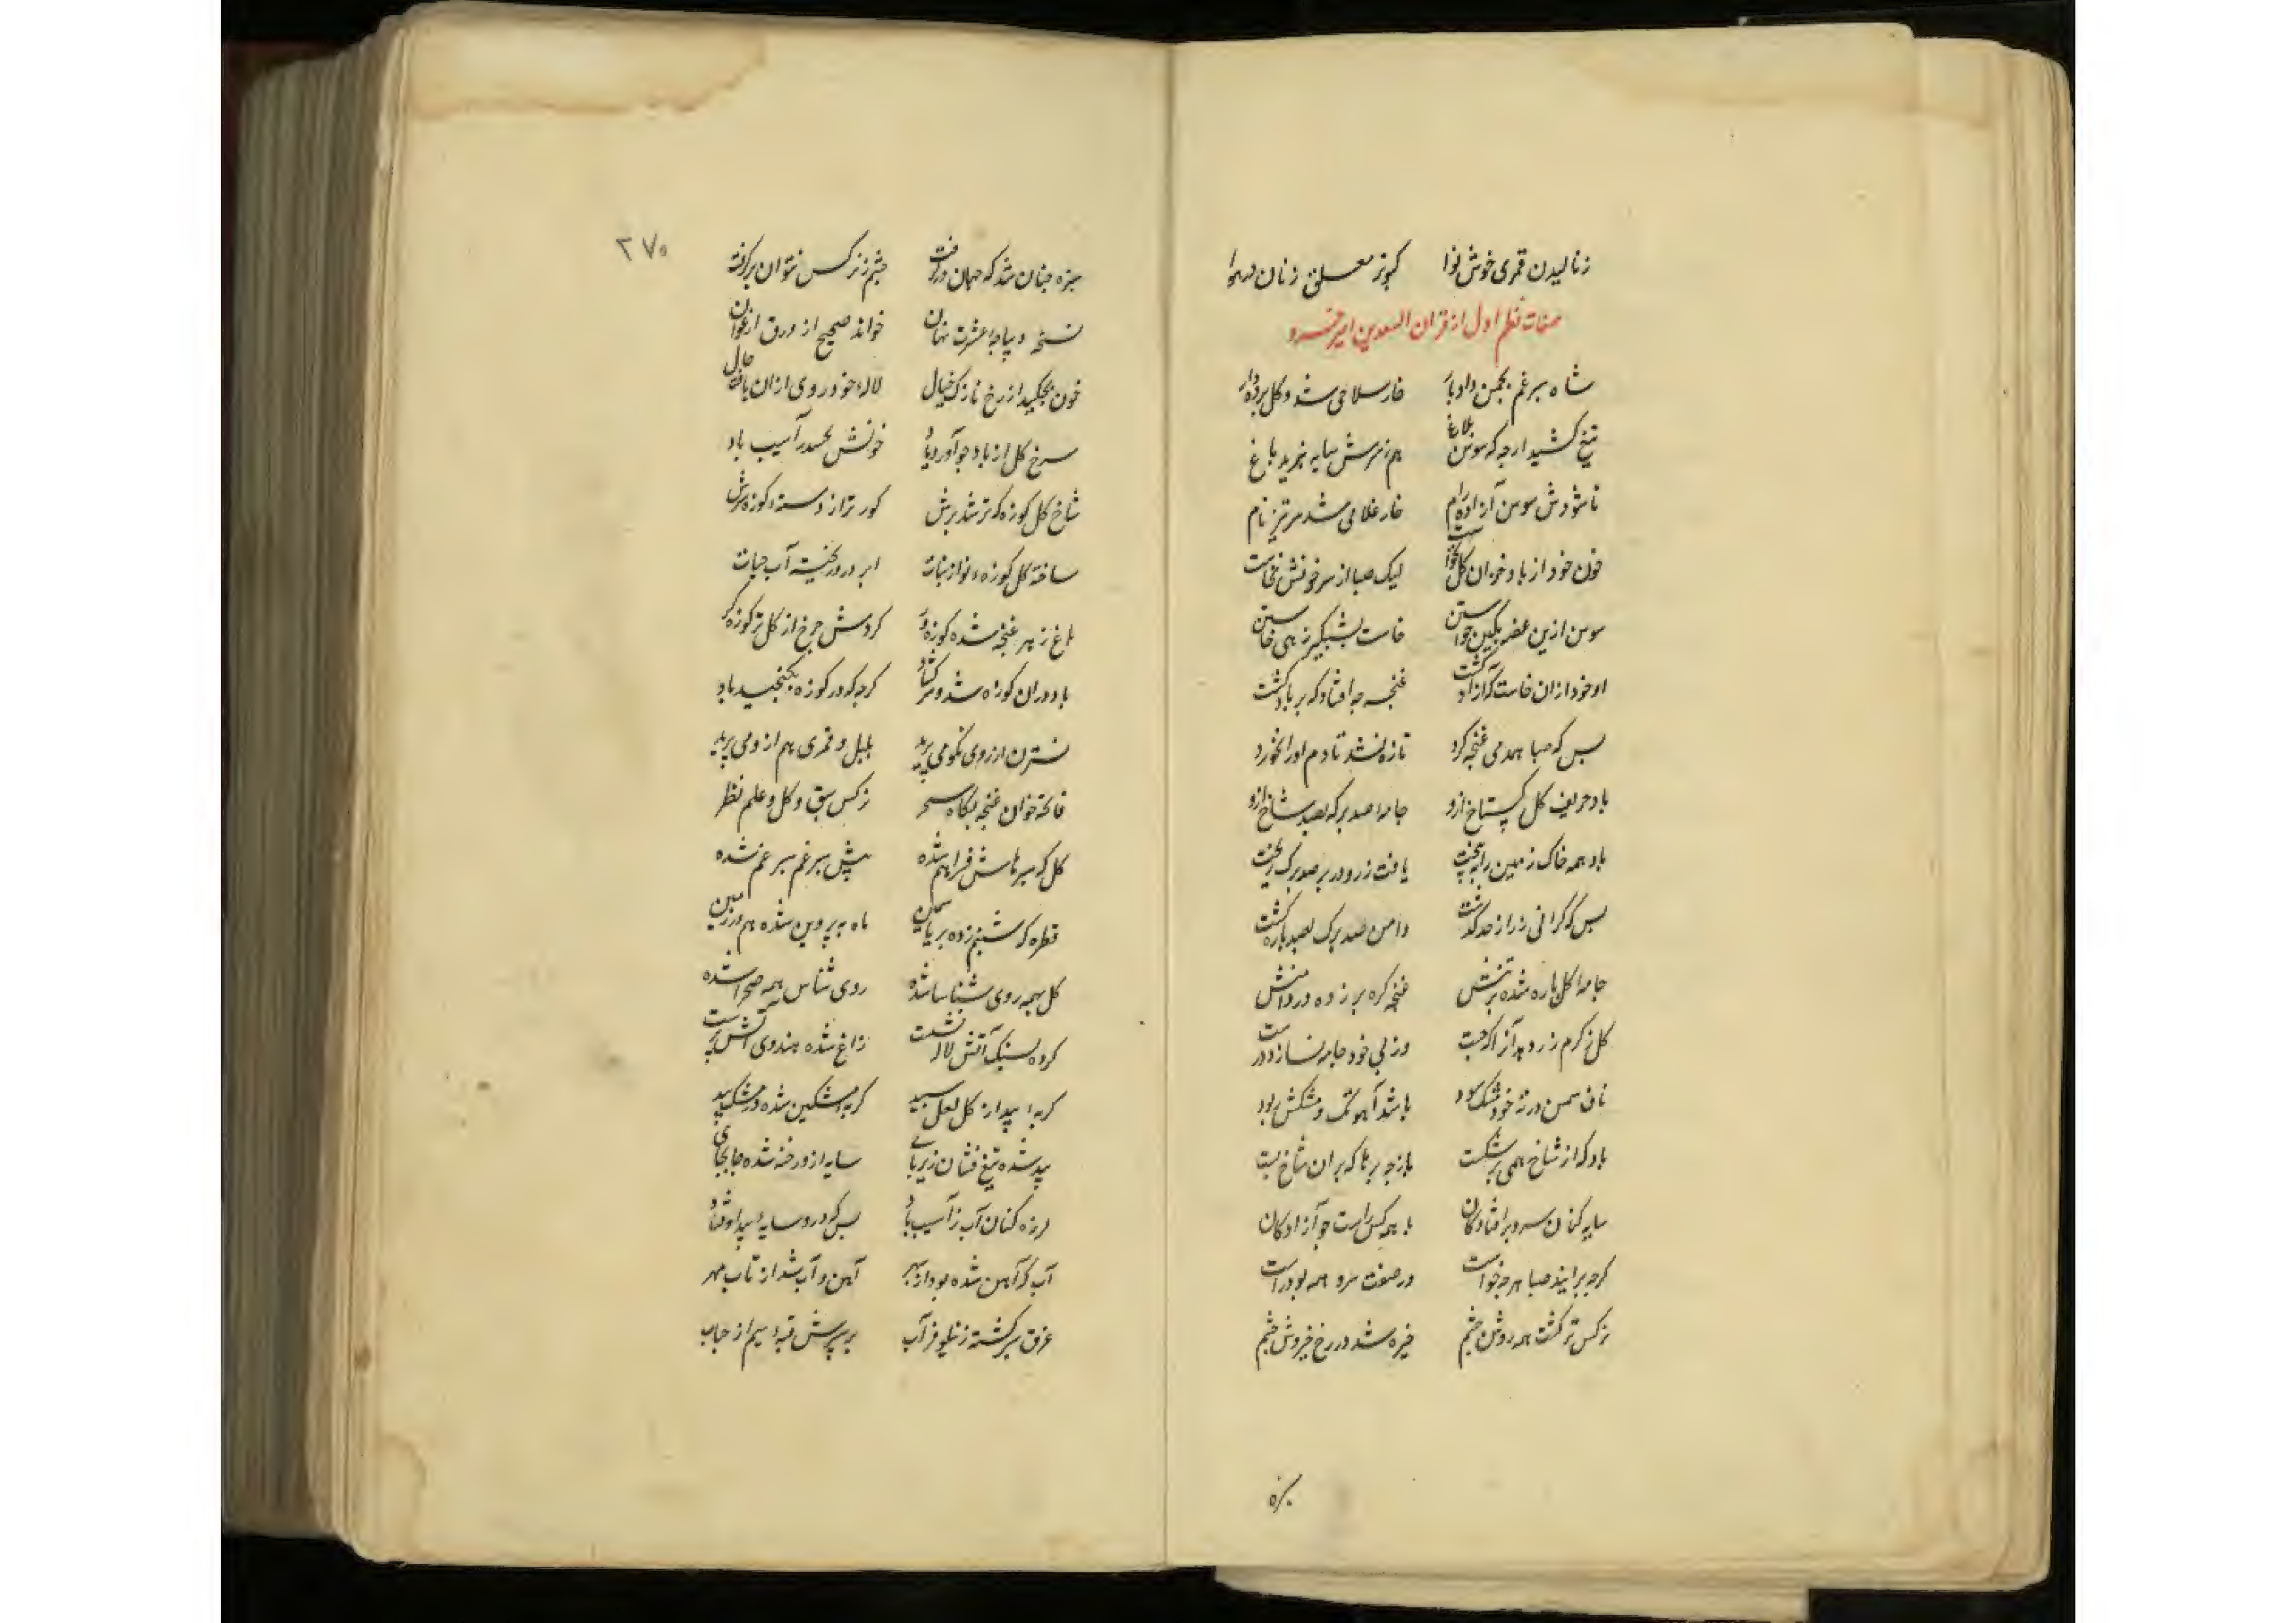 زنالیدن قمری خوش نوا کبوتر معلق زنان در هوا
صفات نظم اول از قران السعدین امیر خسرو
شاه سپرغم بچمن داد بار خار سلاحی شد و گل پرده دار
تیغ کشید ارچه که سوسن بلاغ هم ز سرش سایه نبرید باغ
تا شودش سوسن آزاد رام خار غلامی شد سر تیز نام
خون خود از باد خزان گل بخواست لیک صبا از سر خونش نخاست
سوسن ازین غصه بکین خواستن خاست بشبگیر زهی خاستن
او خود ازان خاست که آزاد گشت غنچه چه افتاد که بر باد گشت
بس که صبا همدمی غنچه کرد تازه نشد تا دم او را نخورد
باد حریف گل گستاخ ازو جامه صد برگ بصد شاخ ازو
باد همه خاک زمین را ببیخت یافت زر و در بر صد برگ ریخت
بس که گرانی زر از حد گذشت دامن صد برگ بصد پاره گشت
جامه گل پاره شده بر تنش غنچه گره بر زده در دامنش
گل ز کرم زر دهد آنرا که جست وز پی خود جامه نسازد درست
ناف سمن در ته خود مشک سود باشد آهو تک و مشکش بود
باد که از شاخ همی بر شکست باز چه برها که بران شاخ بست
سایه کنان سرو بر افتادگان با همه کس راست چو آزادگان
گرچه براند صبا هر چه خواست در صفت سرو همه بود راست
نرگس تر گشت همه روشن چشم خیره شد در رخ خیروش چشم
سبزه
۲۷۰
سبزه چنان شد که جهان در گرفت چشم ز نرگس نتوان بر گرفت
نسخه دیباچه عشرت نهان خواند صحیح از ورق ارغوان
خون بچکید از رخ نازک خیال لاله خودروی ازان یافت خال
سرخ گل از باد چو آورد یاد خونش بحسد آسیب باد
شاخ گل کوزه که تر شد برش کوزه تر از دسته و کوزه سرش
ساخته گل کوزه نو از نبات ابر درو ریخته آب حیات
باغ ز هر غنچه شده کوزه ور گردش چرخ از گل تر کوزه گر
باد دران کوزه شد و سر گشاد گرچه که در کوزه نگنجید باد
نسترن از روی نکو می پرید بلبل و قمری هم ازو می پرید
فاتحه خوان غنچه بگاه سحر نرگس سبق و گل و علم نظر
گل که سپرهاش فراهم شده پیش سپرغم سپر غم شده
قطره که شبنم زده بر یاسمین ماه به پروین شده هم در زمین
گل بهمه روی شناسا شده روی شناس همه صحرا شده
کرده بسنگ آتش لاله نشست زاغ شده هندوی آتش پرست
گربه بید از گل لعل سپید گربه مشکین شده در مشک بید
بید شده تیغ فشان زیر پای سایه ازو رخنه شده جا بجای
لرزه کنان آب ز آسیب باد بس که درو سایه بید اوفتاد
آب که آهن شده بود از سپهر آهن و آب شد از تاب مهر
غرق سر گشته ز نیلوفر آب بر سرش قبه سیم از حباب